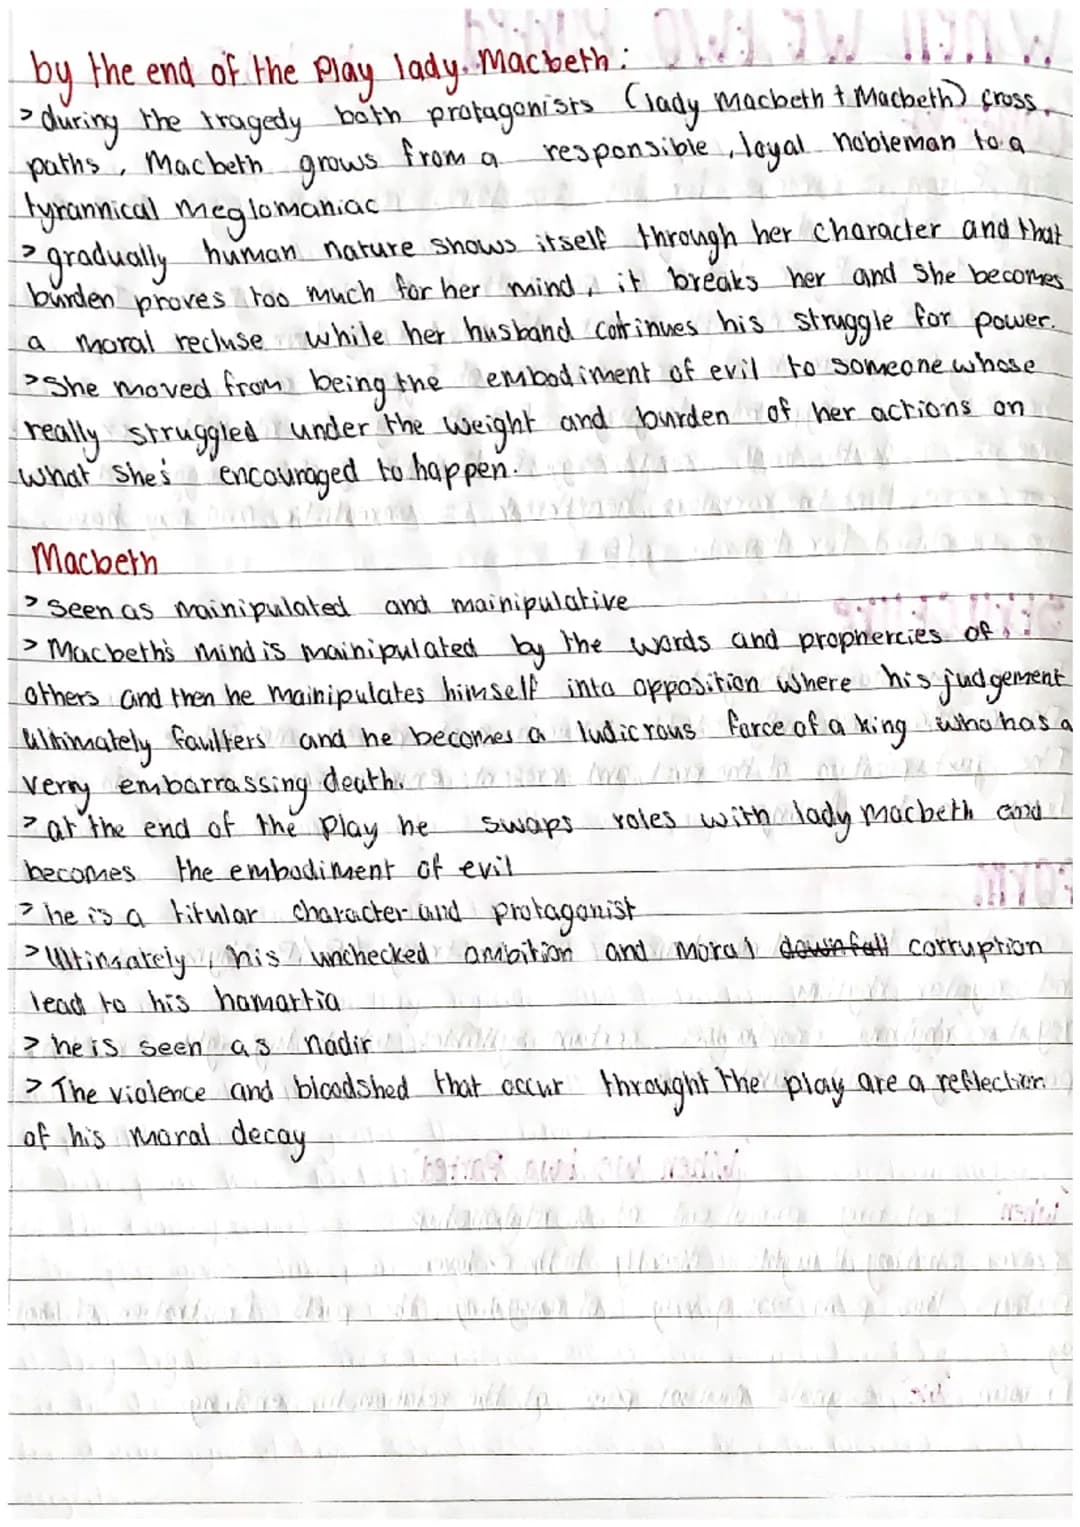 by the end of the Play lady. Macbeth :
> during the tragedy both protagonists (lady Macbeth + Macbeth) cross
paths, Macbeth grows from a responsible, loyal nobleman to a
tyrannical meglomaniac
> gradually human nature shows itself through her character and that
burden proves too much for her mind, it breaks her and she becomes
a moral recluse while her husband continues his struggle for power.
> She moved from being the embodiment of evil to someone whose
really struggled under the weight and burden of her actions on
what she's encouraged to happen.
Macbeth
> seen as mainipulated and mainipulative
> Macbeth's mind is mainipulated by the words and prophercies of
others and then he mainipulates himself into opposition where his judgement
Ultimately faulters and he becomes a ludicrous force of a king who has a
verry embarrassing death.
> at the end of the play he swaps roles with lady Macbeth and
becomes the embodiment of evil
> he is a titular character and protagonist
> Ultimately, his unchecked ambition and moral downfall corruption
lead to his hamartia
> he is seen as nadir
> The violence and bloodshed that occur throught the play are a reflection
of his moral decay